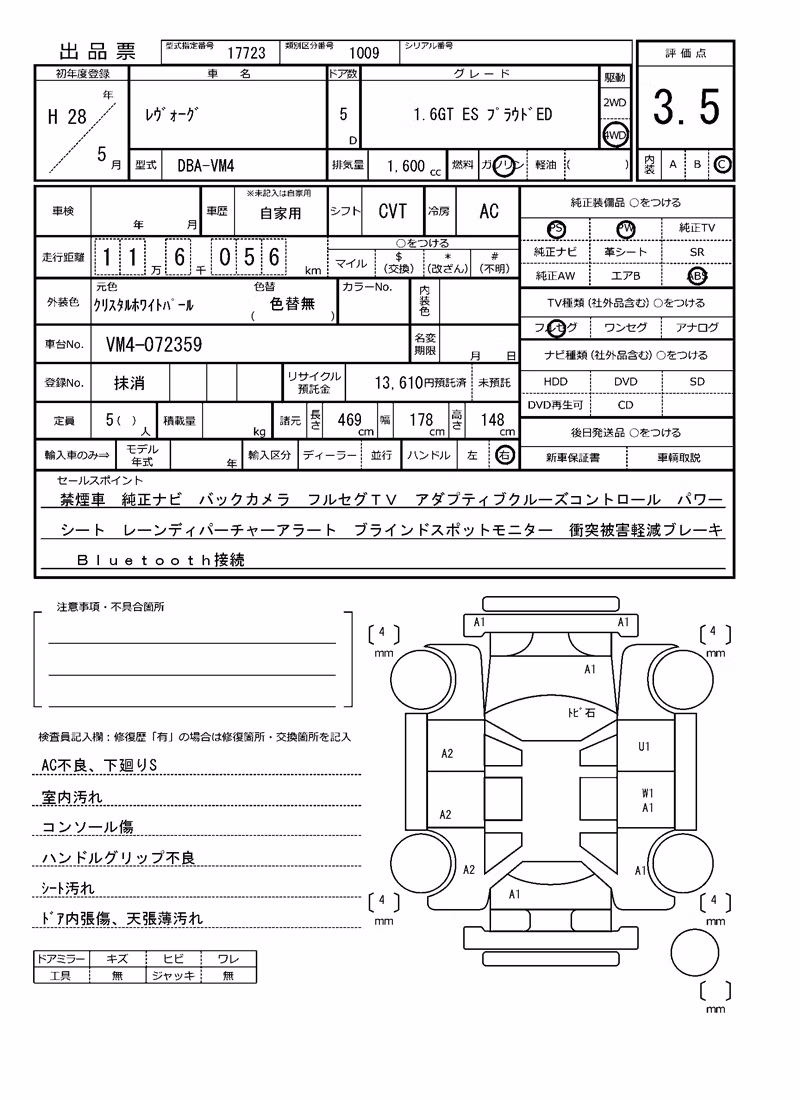 出品票
型式指定番号 17723 類別区分番号 1009 シリアル番号
評価点
3.5
内装 A B C
初年度登録 車名 ドア数 グレード 駆動
H 28 年 5 月
ﾚｳﾞｫｰｸﾞ
5 D
1.6GT ES ﾌﾟﾗｳﾄﾞED
2WD
4WD
型式 DBA-VM4 排気量 1,600 cc 燃料 ガソリン 軽油 ( )
車検 年 月 車歴 ※未記入は自家用 自家用 シフト CVT 冷房 AC
走行距離 1 1 万 6 千 0 5 6 km
○をつける
マイル $(交換) *(改ざん) #(不明)
外装色 元色 ｸﾘｽﾀﾙﾎﾜｲﾄﾊﾟｰﾙ 色替 ( 色替無 ) カラーNo. 内装色
車台No. VM4-072359 名変期限 月 日
登録No. 抹消 リサイクル預託金 13,610円預託済 未預託
定員 5( ) 人 積載量 kg 諸元 長さ 469 cm 幅 178 cm 高さ 148 cm
輸入車のみ⇒ モデル年式 年 輸入区分 ディーラー 並行 ハンドル 左 右
純正装備品 ○をつける
PS PW 純正TV
純正ナビ 革シート SR
純正AW エアB ABS
TV種類(社外品含む) ○をつける
フルセグ ワンセグ アナログ
ナビ種類(社外品含む) ○をつける
HDD DVD SD
DVD再生可 CD
後日発送品 ○をつける
新車保証書 車輌取説
セールスポイント
禁煙車 純正ナビ バックカメラ フルセグＴＶ アダプティブクルーズコントロール パワー
シート レーンディパーチャーアラート ブラインドスポットモニター 衝突被害軽減ブレーキ
Ｂｌｕｅｔｏｏｔｈ接続
注意事項・不具合箇所
検査員記入欄：修復歴「有」の場合は修復箇所・交換箇所を記入
AC不良、下廻りS
室内汚れ
コンソール傷
ハンドルグリップ不良
ｼｰﾄ汚れ
ﾄﾞｱ内張傷、天張薄汚れ
ドアミラー キズ ヒビ ワレ
工具 無 ジャッキ 無
[ 4 ] mm
A1 A1
[ 4 ] mm
A1
ﾄﾋﾞ石
A2
U1
A2
W1
A1
A2
A1
A1
[ 4 ] mm
[ 4 ] mm
[ ] mm